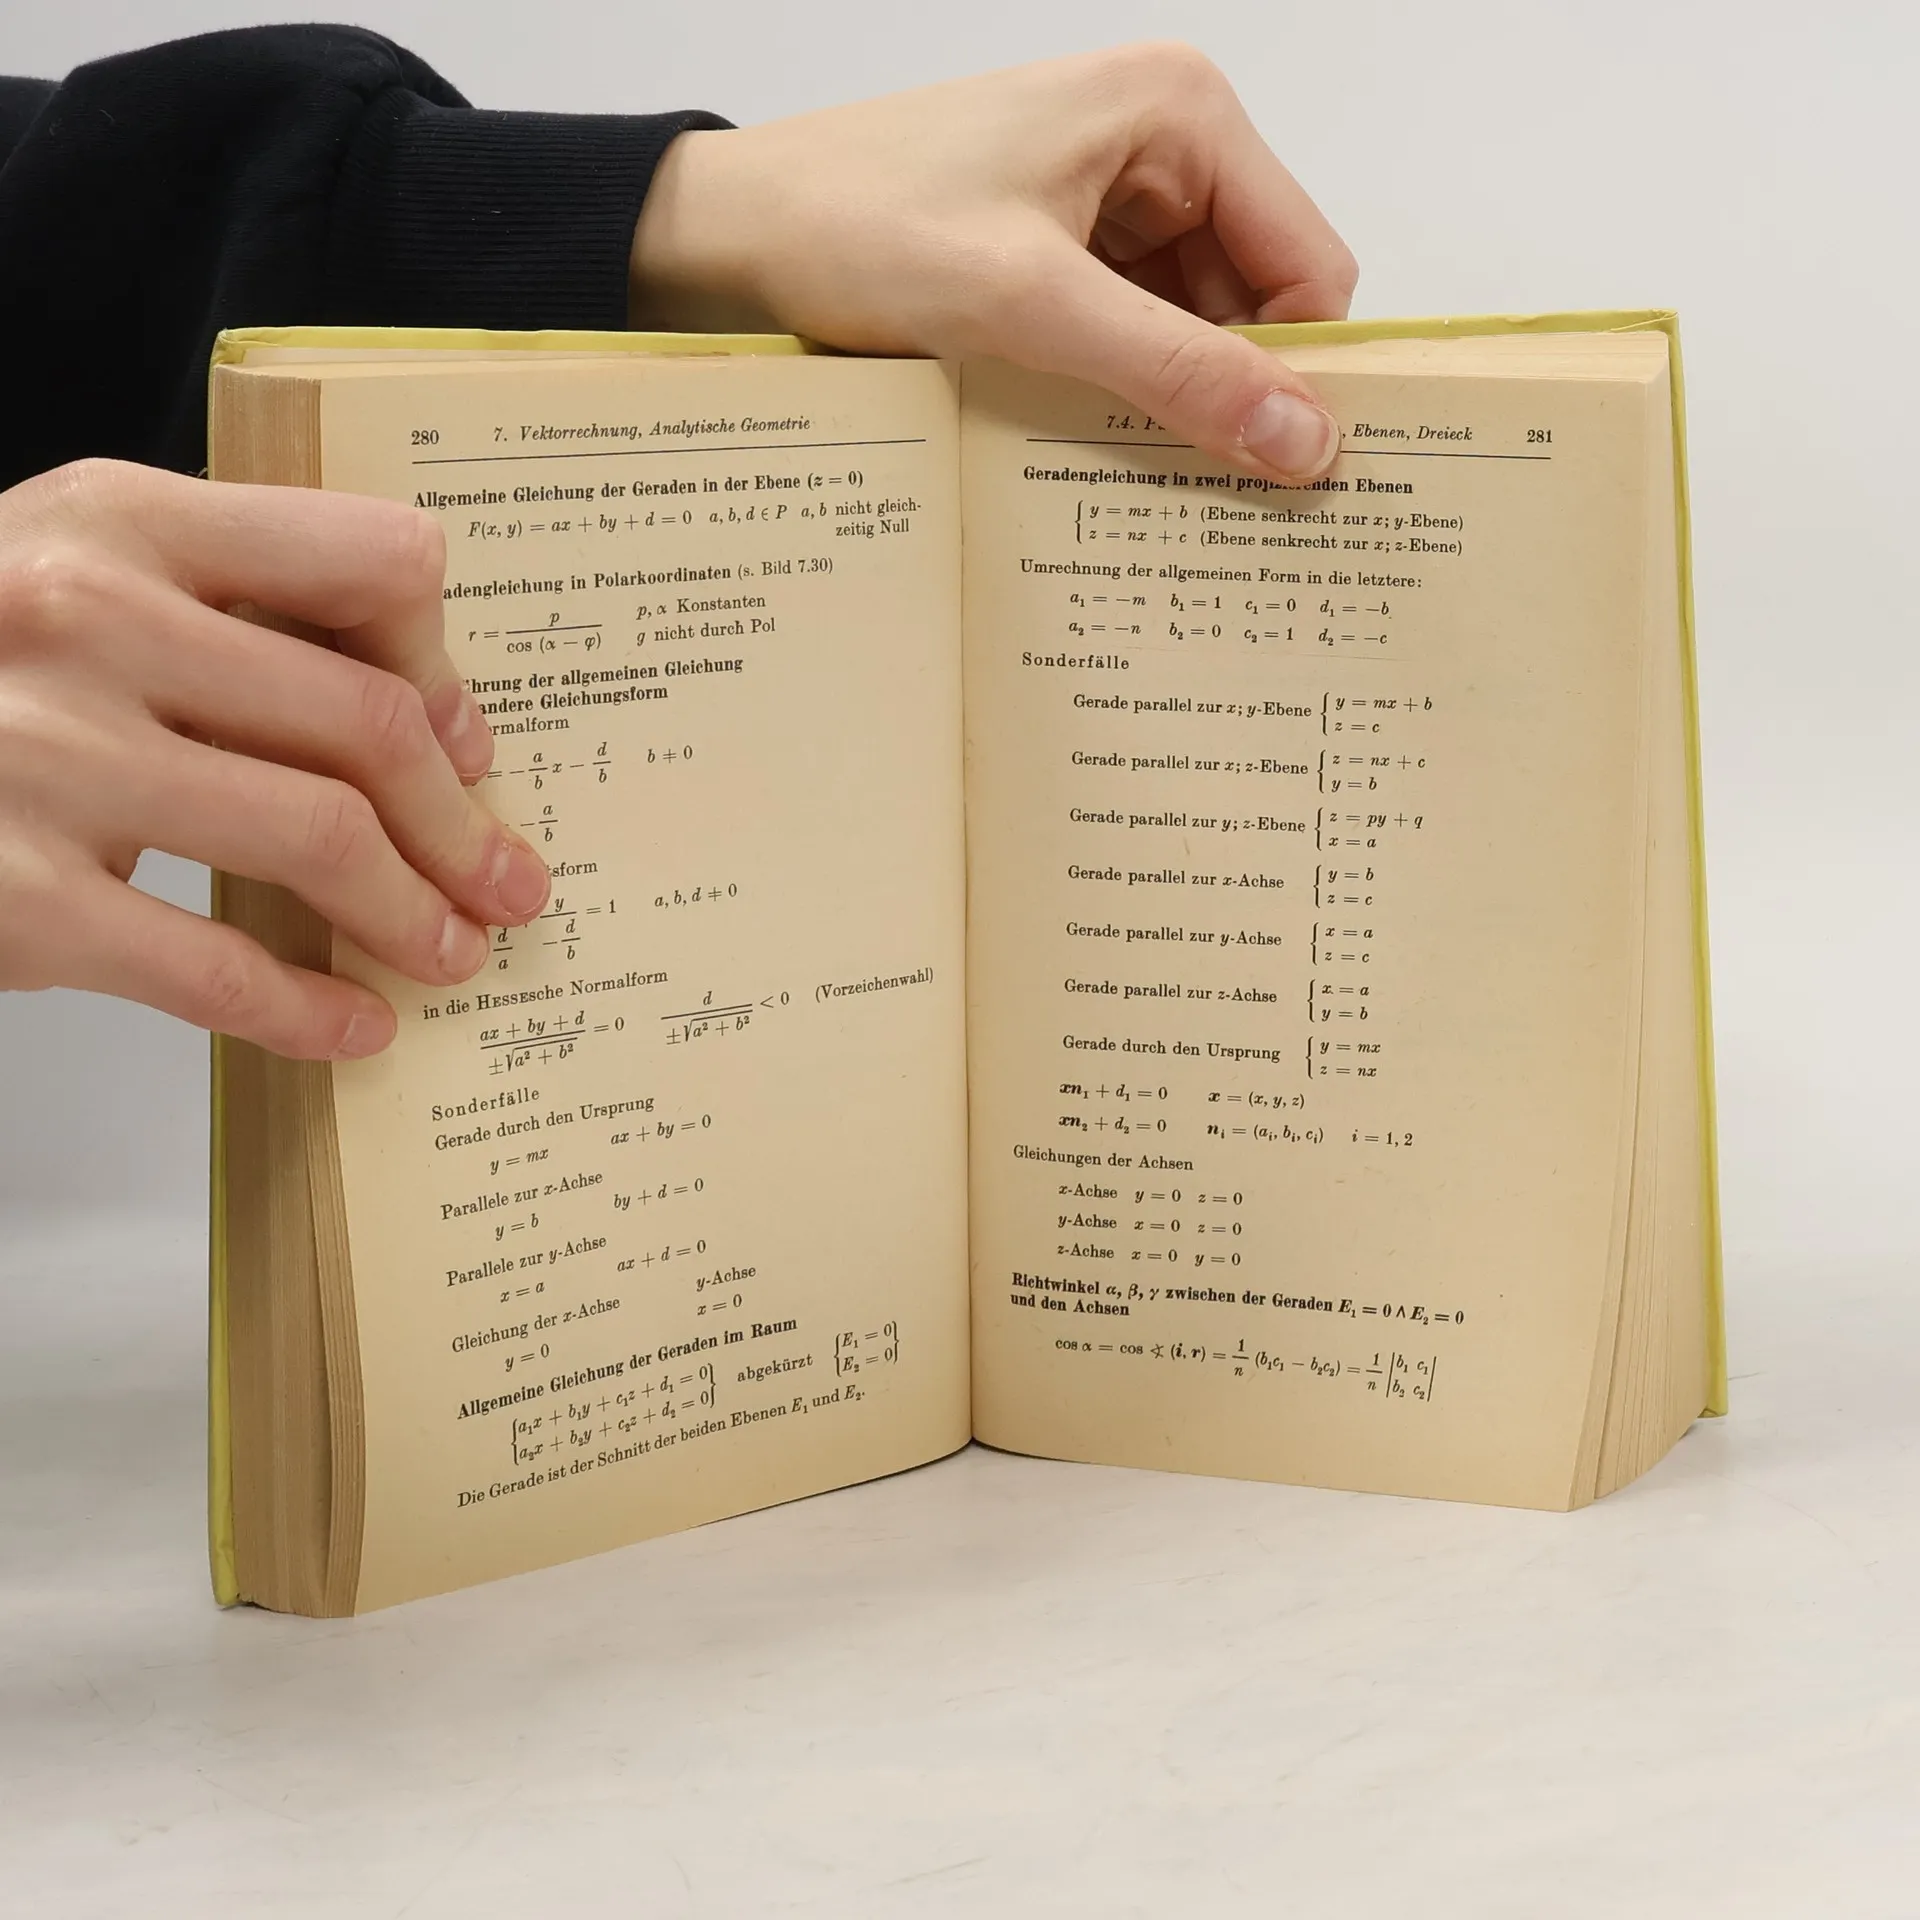 280 7. Vektorrechnung, Analytische Geometrie
Allgemeine Gleichung der Geraden in der Ebene (z = 0)
F(x, y) = ax + by + d = 0 a, b, d ∈ P a, b nicht gleich-
zeitig Null
adengleichung in Polarkoordinaten (s. Bild 7.30)
r = p / cos (α − φ) p, α Konstanten
g nicht durch Pol
hrung der allgemeinen Gleichung
andere Gleichungsform
rmalform
= − a/b x − d/b b ≠ 0
− a/b
tsform
d/a y / − d/b = 1 a, b, d ≠ 0
in die HESSEsche Normalform
ax + by + d / ±√a² + b² = 0 d / ±√a² + b² < 0 (Vorzeichenwahl)
Sonderfälle
Gerade durch den Ursprung
y = mx ax + by = 0
Parallele zur x-Achse
y = b by + d = 0
Parallele zur y-Achse
x = a ax + d = 0
Gleichung der x-Achse y-Achse
y = 0 x = 0
Allgemeine Gleichung der Geraden im Raum
{a₁x + b₁y + c₁z + d₁ = 0} abgekürzt {E₁ = 0}
{a₂x + b₂y + c₂z + d₂ = 0} {E₂ = 0}
Die Gerade ist der Schnitt der beiden Ebenen E₁ und E₂.
7.4. , Ebenen, Dreieck 281
Geradengleichung in zwei projizierenden Ebenen
{ y = mx + b (Ebene senkrecht zur x; y-Ebene)
{ z = nx + c (Ebene senkrecht zur x; z-Ebene)
Umrechnung der allgemeinen Form in die letztere:
a₁ = −m b₁ = 1 c₁ = 0 d₁ = −b
a₂ = −n b₂ = 0 c₂ = 1 d₂ = −c
Sonderfälle
Gerade parallel zur x; y-Ebene { y = mx + b
{ z = c
Gerade parallel zur x; z-Ebene { z = nx + c
{ y = b
Gerade parallel zur y; z-Ebene { z = py + q
{ x = a
Gerade parallel zur x-Achse { y = b
{ z = c
Gerade parallel zur y-Achse { x = a
{ z = c
Gerade parallel zur z-Achse { x = a
{ y = b
Gerade durch den Ursprung { y = mx
{ z = nx
xn₁ + d₁ = 0 x = (x, y, z)
xn₂ + d₂ = 0 nᵢ = (aᵢ, bᵢ, cᵢ) i = 1, 2
Gleichungen der Achsen
x-Achse y = 0 z = 0
y-Achse x = 0 z = 0
z-Achse x = 0 y = 0
Richtwinkel α, β, γ zwischen der Geraden E₁ = 0 ∧ E₂ = 0
und den Achsen
cos α = cos ∢ (i, r) = 1/n (b₁c₁ − b₂c₂) = 1/n |b₁ c₁|
|b₂ c₂|